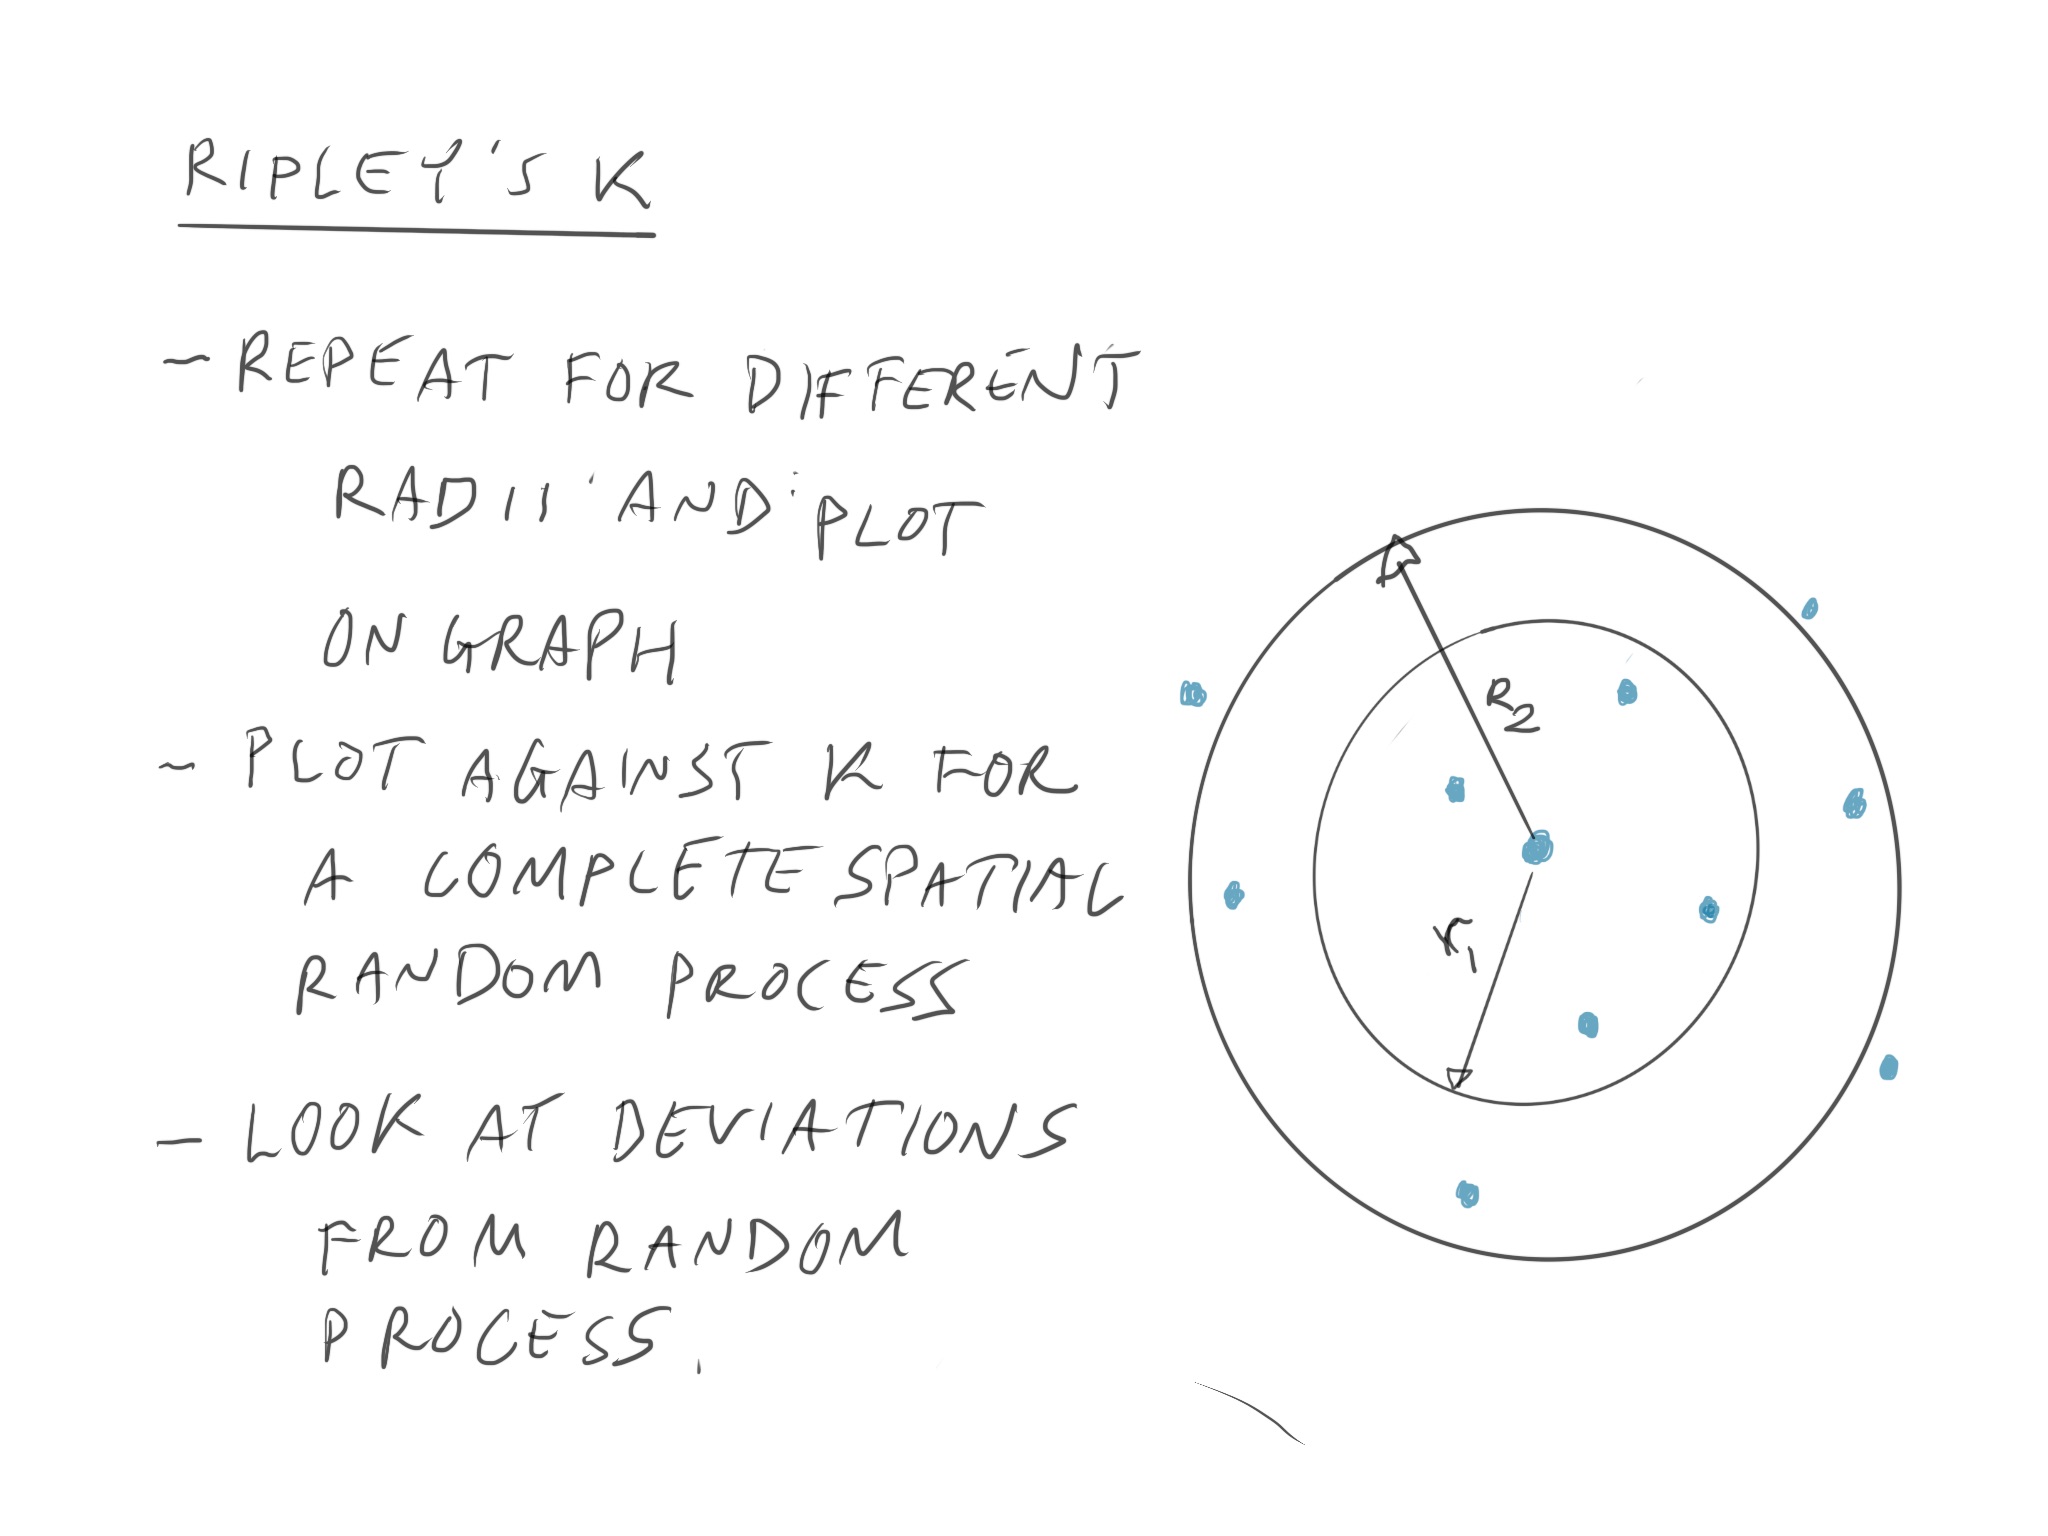 RIPLEY'S K
- REPEAT FOR DIFFERENT
RADII AND PLOT
ON GRAPH
- PLOT AGAINST K FOR
A COMPLETE SPATIAL
RANDOM PROCESS
- LOOK AT DEVIATIONS
FROM RANDOM
PROCESS.
R2
r1